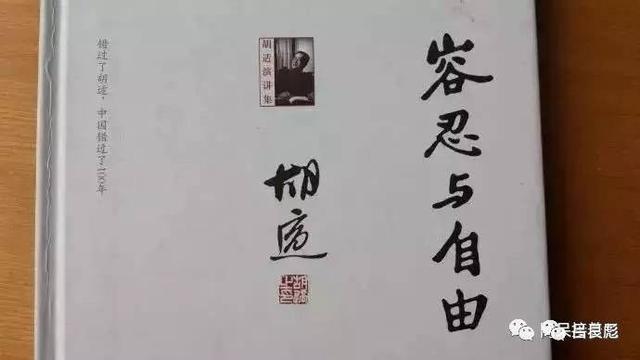 容忍与自由
胡适演讲集
胡适
胡适之印
错过了胡适，中国错过了100年